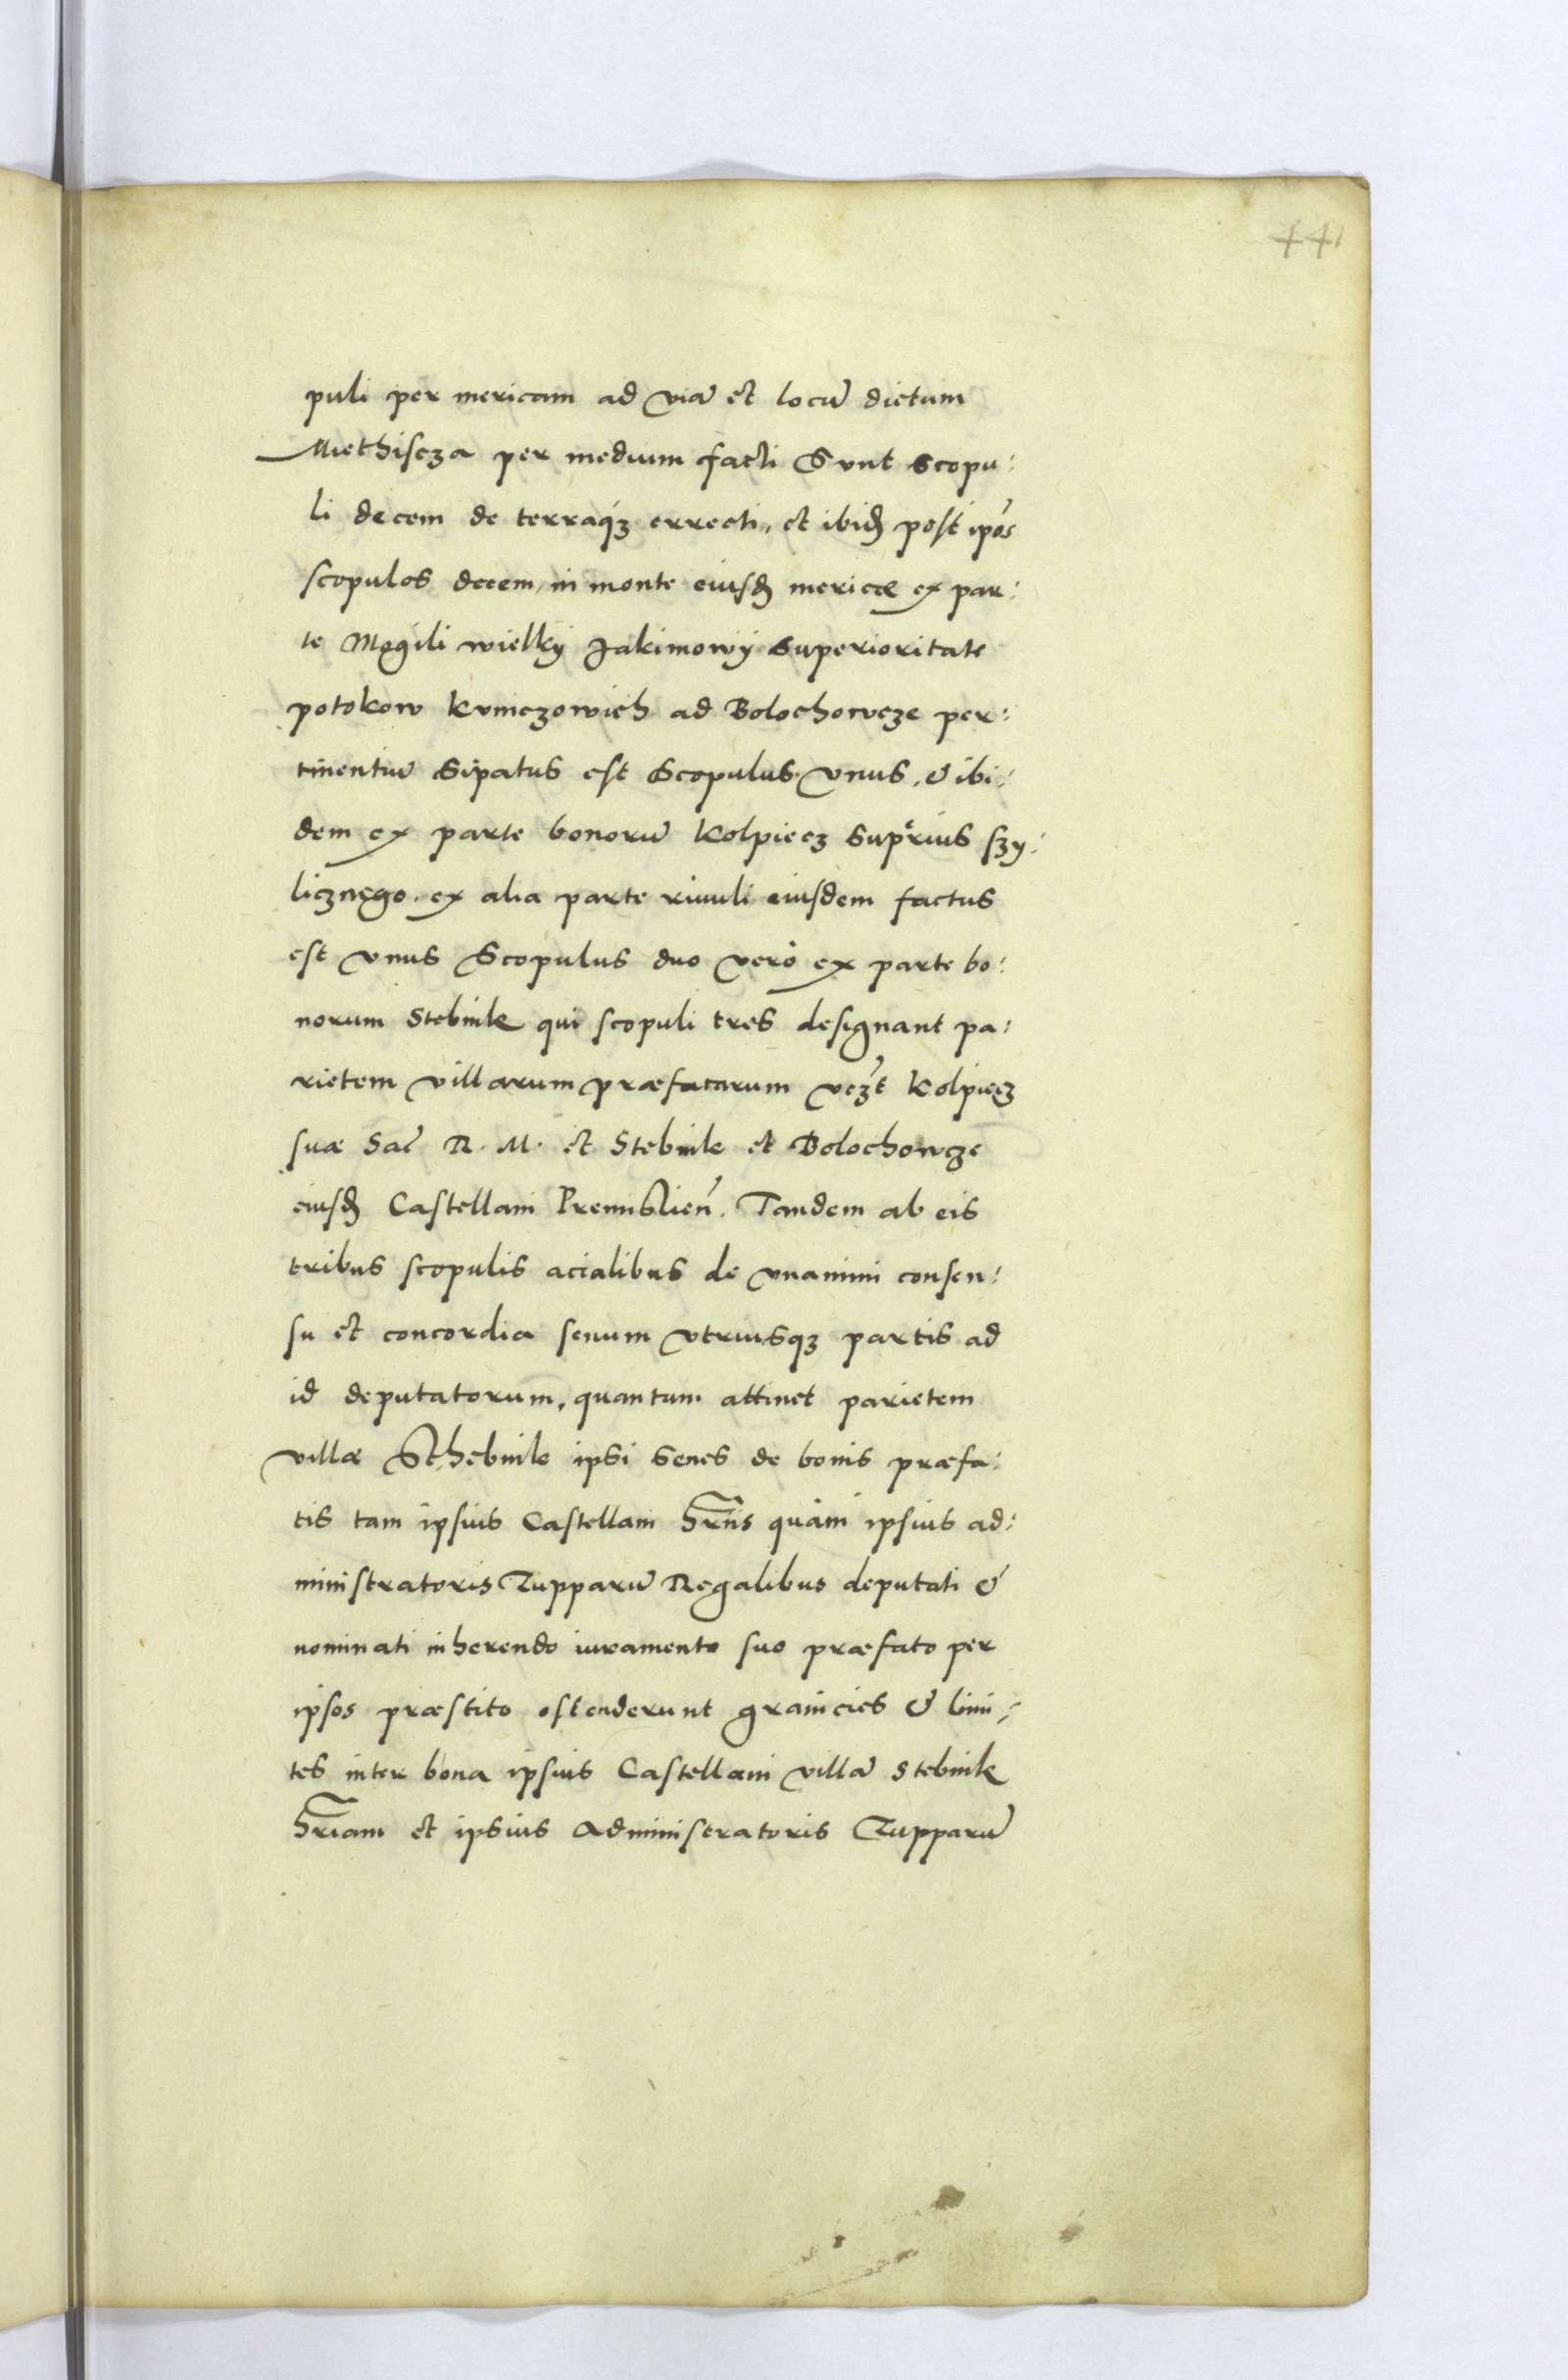 441
puli per mericam ad viã et locũ dictum
Miethiscza per medium facti Sunt scopu:
li decem de terraq́ȝ errecti, et ibid̃ post ipõs
scopulos decem, in monte eiusd̃ mericæ ex par:
te Mogili wielkij Jakimowij superioritate
potokow kuniczowich ad Bolochowcze per:
tinentiũ sipatus est Scopulus vnus, & ibi:
dem ex parte bonorũ Kolpiecz sup̃rius szy:
licznego. ex alia parte riuuli eiusdem factus
est vnus Scopulus duo verò ex parte bo:
norum Stebnik qui scopuli tres designant pa:
rietem villarum præfatarum vcz̃t Kolpiecz
suæ Sac̃ R. M. et Stebnik et Bolochowcze
eiusd̃ Castellani Premislieñ. Tandem ab eis
tribus scopulis acialibus de vnanimi consen:
su et concordia senum vtriusqȝ partis ad
id deputatorum, quantum attinet parietem
villæ Sthebnik ipsi senes de bonis præfa:
tis tam ipsius Castellani hr̃iis quàm ipsius ad:
ministratoris Zupparũ Regalibus deputati &
nominati inherendo iuramento suo præfato per
ipsos præstito ostenderunt granicies & limi:
tes inter bona ipsius Castellani villã Stebnik
hr̃iam et ipsius Administratoris Zupparũ